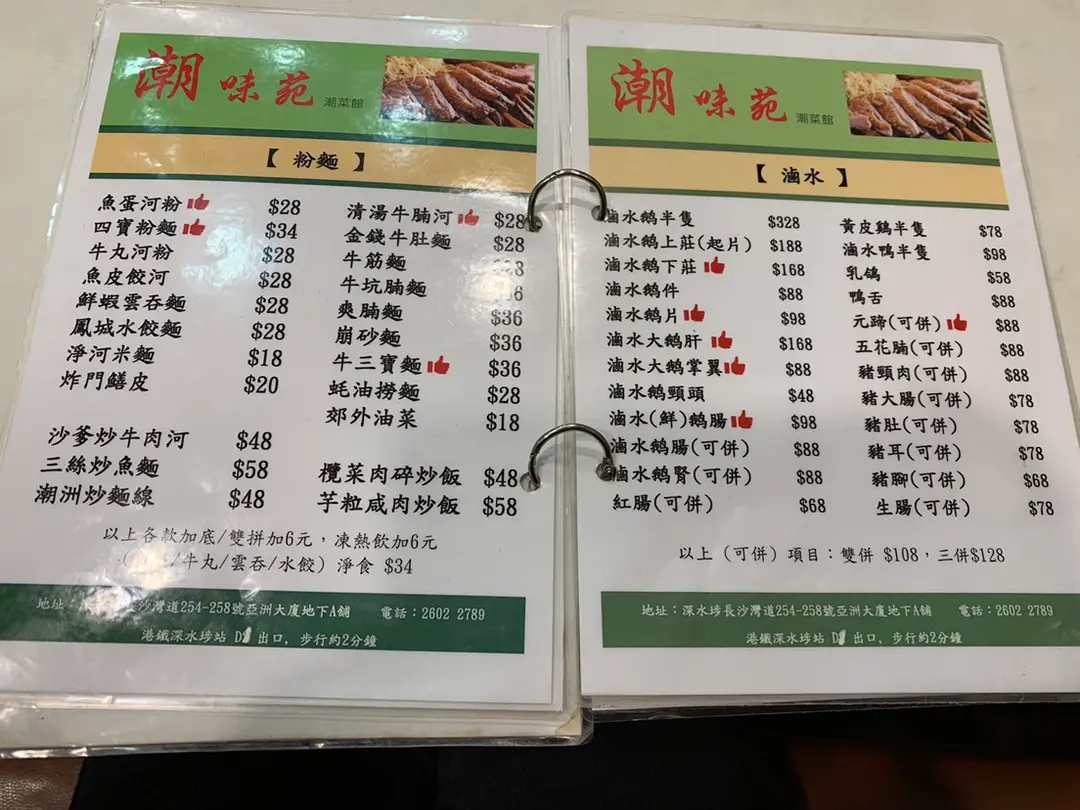 潮味苑 潮菜館
【 粉麵 】
魚蛋河粉 $28
四寶粉麵 $34
牛丸河粉 $28
魚皮餃河 $28
鮮蝦雲吞麵 $28
鳳城水餃麵 $28
淨河米麵 $18
炸門鱔皮 $20
清湯牛腩河 $28
金錢牛肚麵 $28
牛筋麵
牛坑腩麵
爽腩麵 $36
崩砂麵 $36
牛三寶麵 $36
蚝油撈麵 $28
郊外油菜 $18
沙爹炒牛肉河 $48
三絲炒魚麵 $58
潮洲炒麵線 $48
欖菜肉碎炒飯 $48
芋粒咸肉炒飯 $58
以上各款加底/雙拼加6元，凍熱飲加6元
/牛丸/雲吞/水餃) 淨食 $34
地址：長沙灣道254-258號亞洲大廈地下A舖 電話：2602 2789
港鐵深水埗站 出口, 步行約2分鐘
潮味苑 潮菜館
【 滷水 】
滷水鵝半隻 $328
滷水鵝上莊(起片) $188
滷水鵝下莊 $168
滷水鵝件 $88
滷水鵝片 $98
滷水大鵝肝 $168
滷水大鵝掌翼 $88
滷水鵝頸頭 $48
滷水(鮮)鵝腸 $98
滷水鵝腸(可併) $88
滷水鵝腎(可併) $88
紅腸(可併) $68
黃皮鷄半隻 $78
滷水鴨半隻 $98
乳鴿 $58
鴨舌 $88
元蹄(可併) $88
五花腩(可併) $88
豬頸肉(可併) $88
豬大腸(可併) $78
豬肚(可併) $78
豬耳(可併) $78
豬腳(可併) $68
生腸(可併) $78
以上 (可併) 項目：雙併 $108，三併$128
地址：深水埗長沙灣道254-258號亞洲大廈地下A舖 電話：2602 2789
港鐵深水埗站 出口, 步行約2分鐘